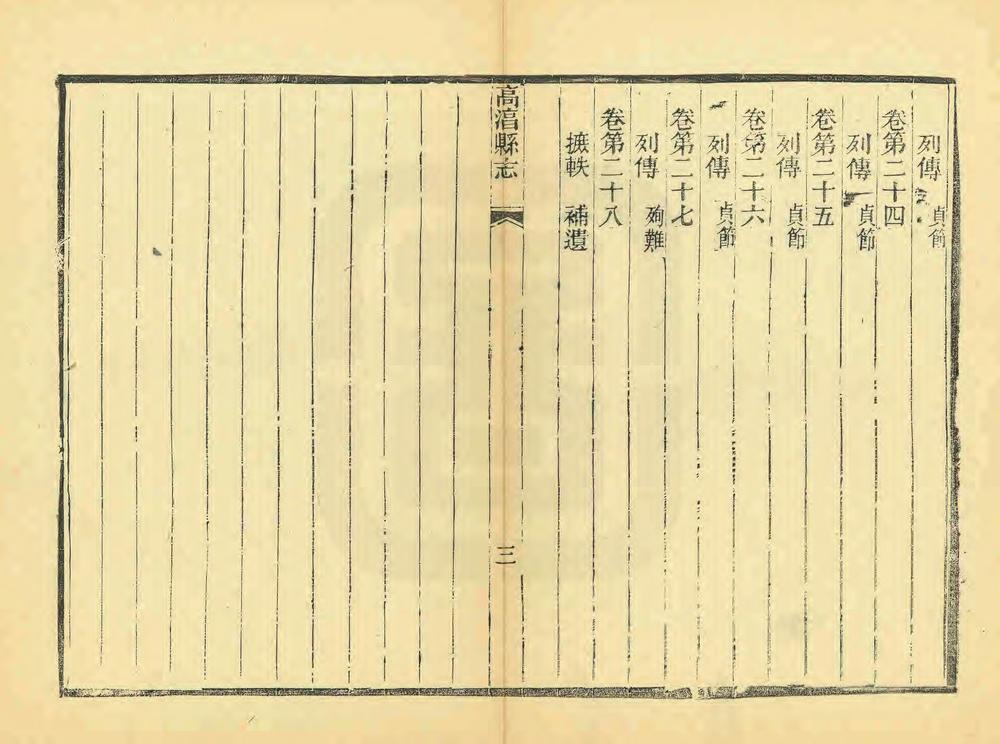 列傳 貞節
卷第二十四
列傳 貞節
卷第二十五
列傳 貞節
卷第二十六
列傳 貞節
卷第二十七
列傳 殉難
卷第二十八
摭軼 補遺
高淳縣志
三